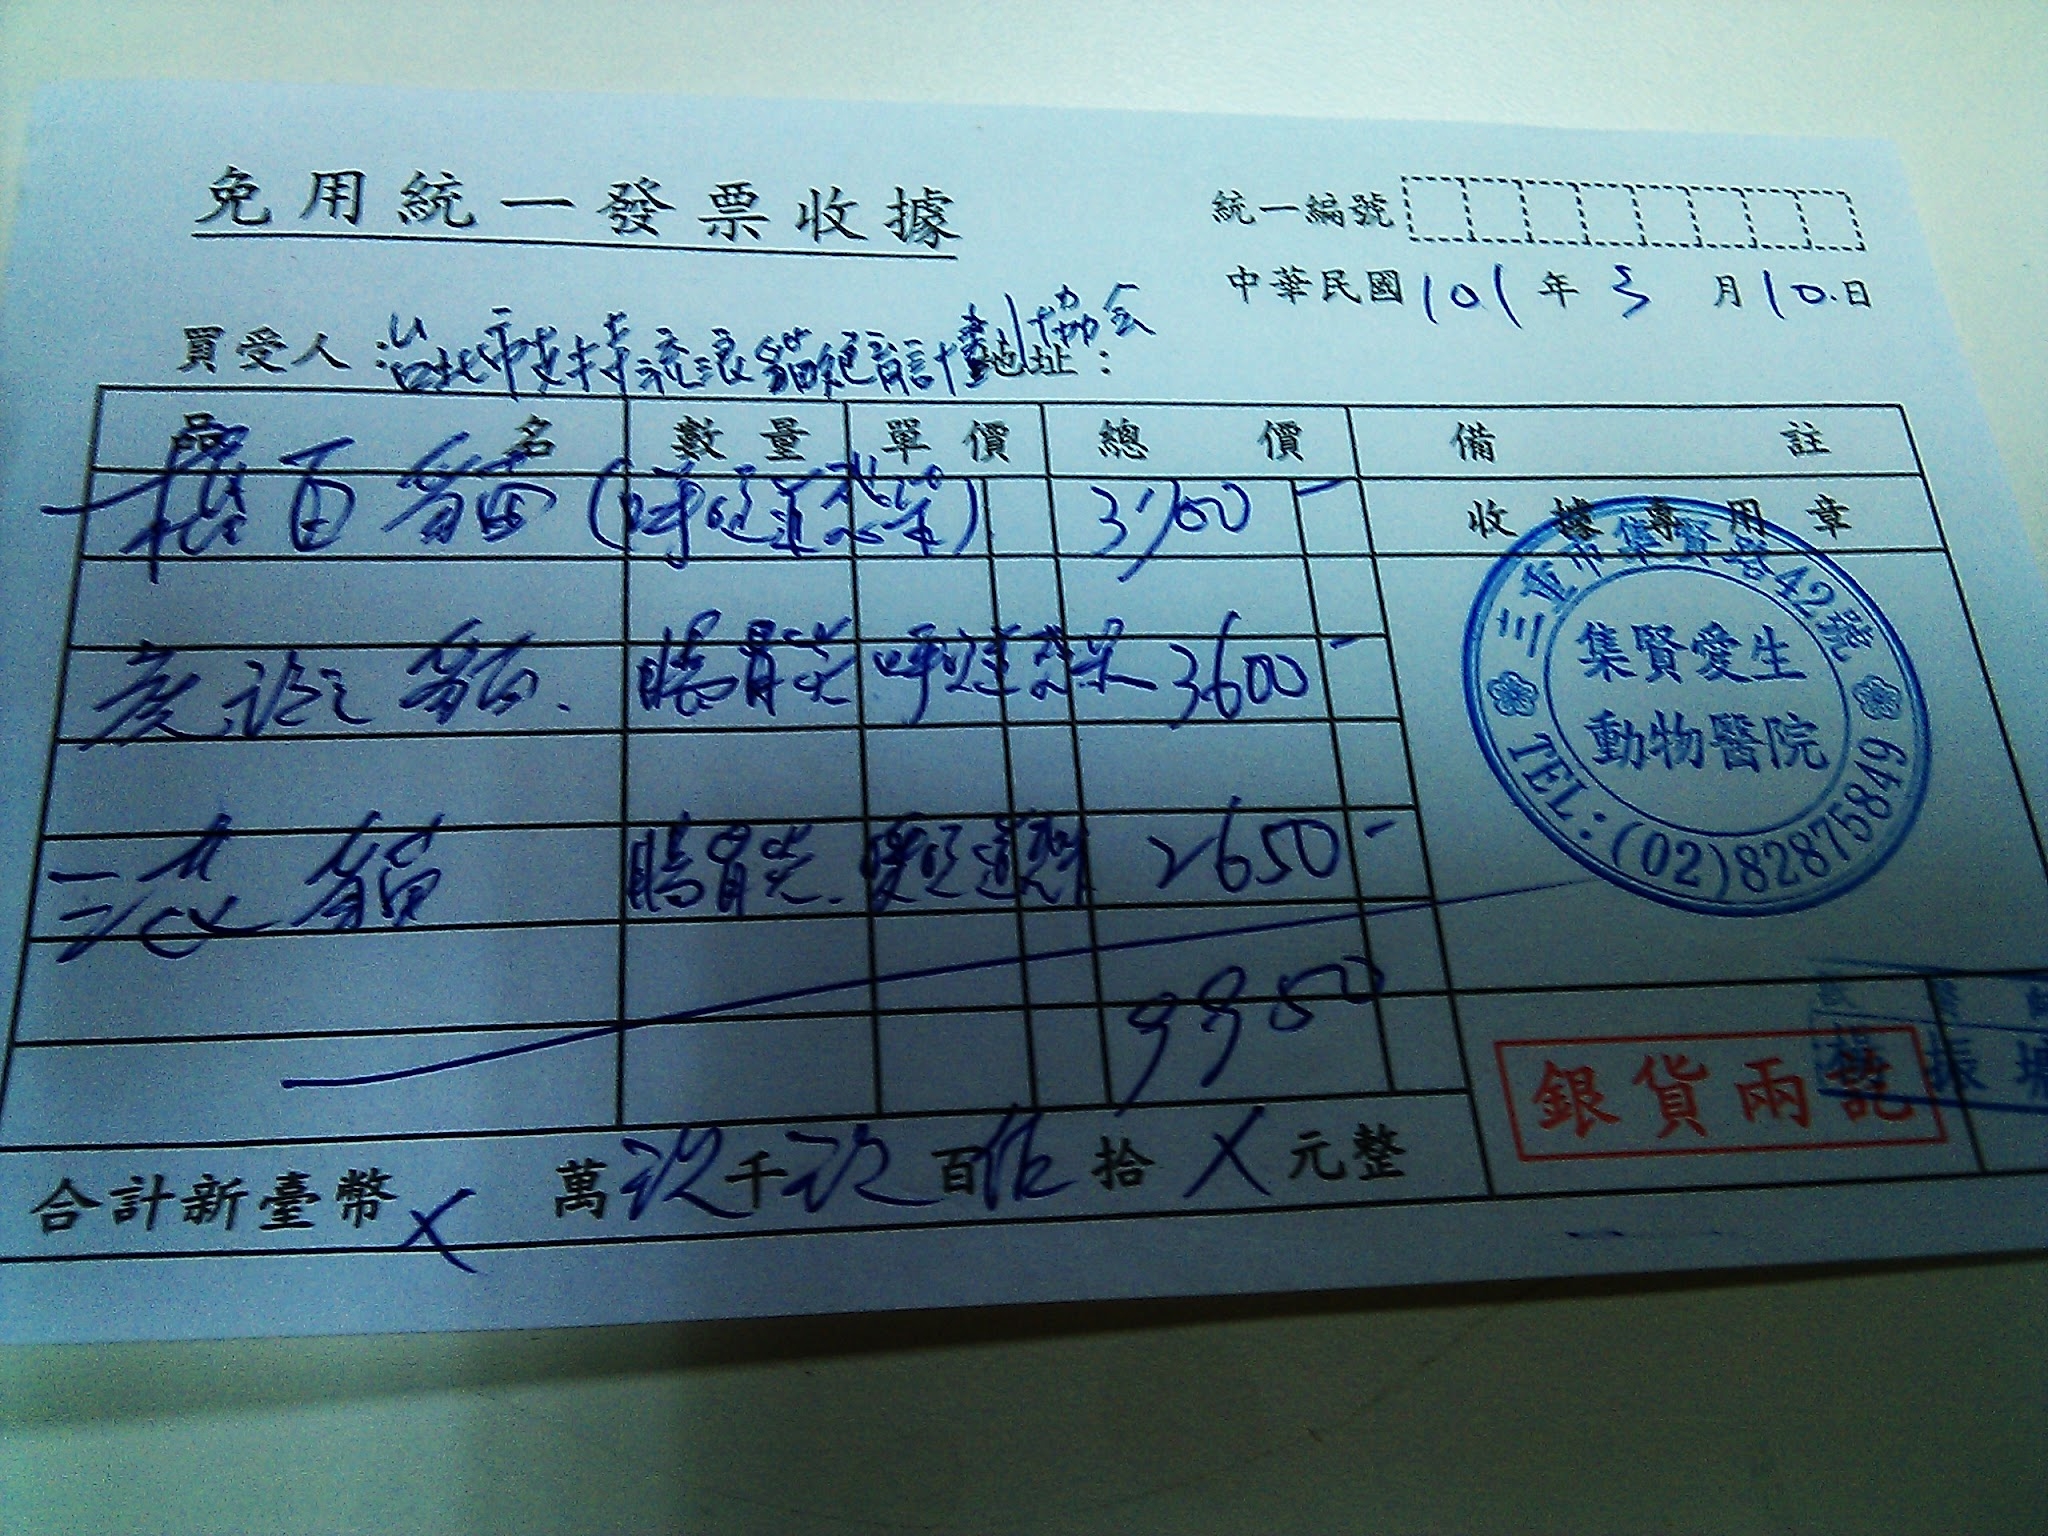 免用統一發票收據
統一編號
中華民國101年3月10日
買受人 台北市支持流浪貓絕育計畫協会 地址：
品名 數量 單價 總價 備註
貓(呼吸道感染) 3700
收據專用章
貓. 腸胃炎 呼吸道感染 3600
貓 腸胃炎. 呼吸道 2650
9950
三重市集賢路42號
集賢愛生
動物醫院
TEL:(02)82875849
銀貨兩訖
振
合計新臺幣X萬玖千玖百伍拾X元整